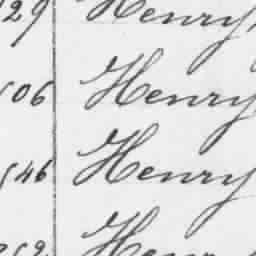 29 Henry,
506 Henry
546 Henry
Henry